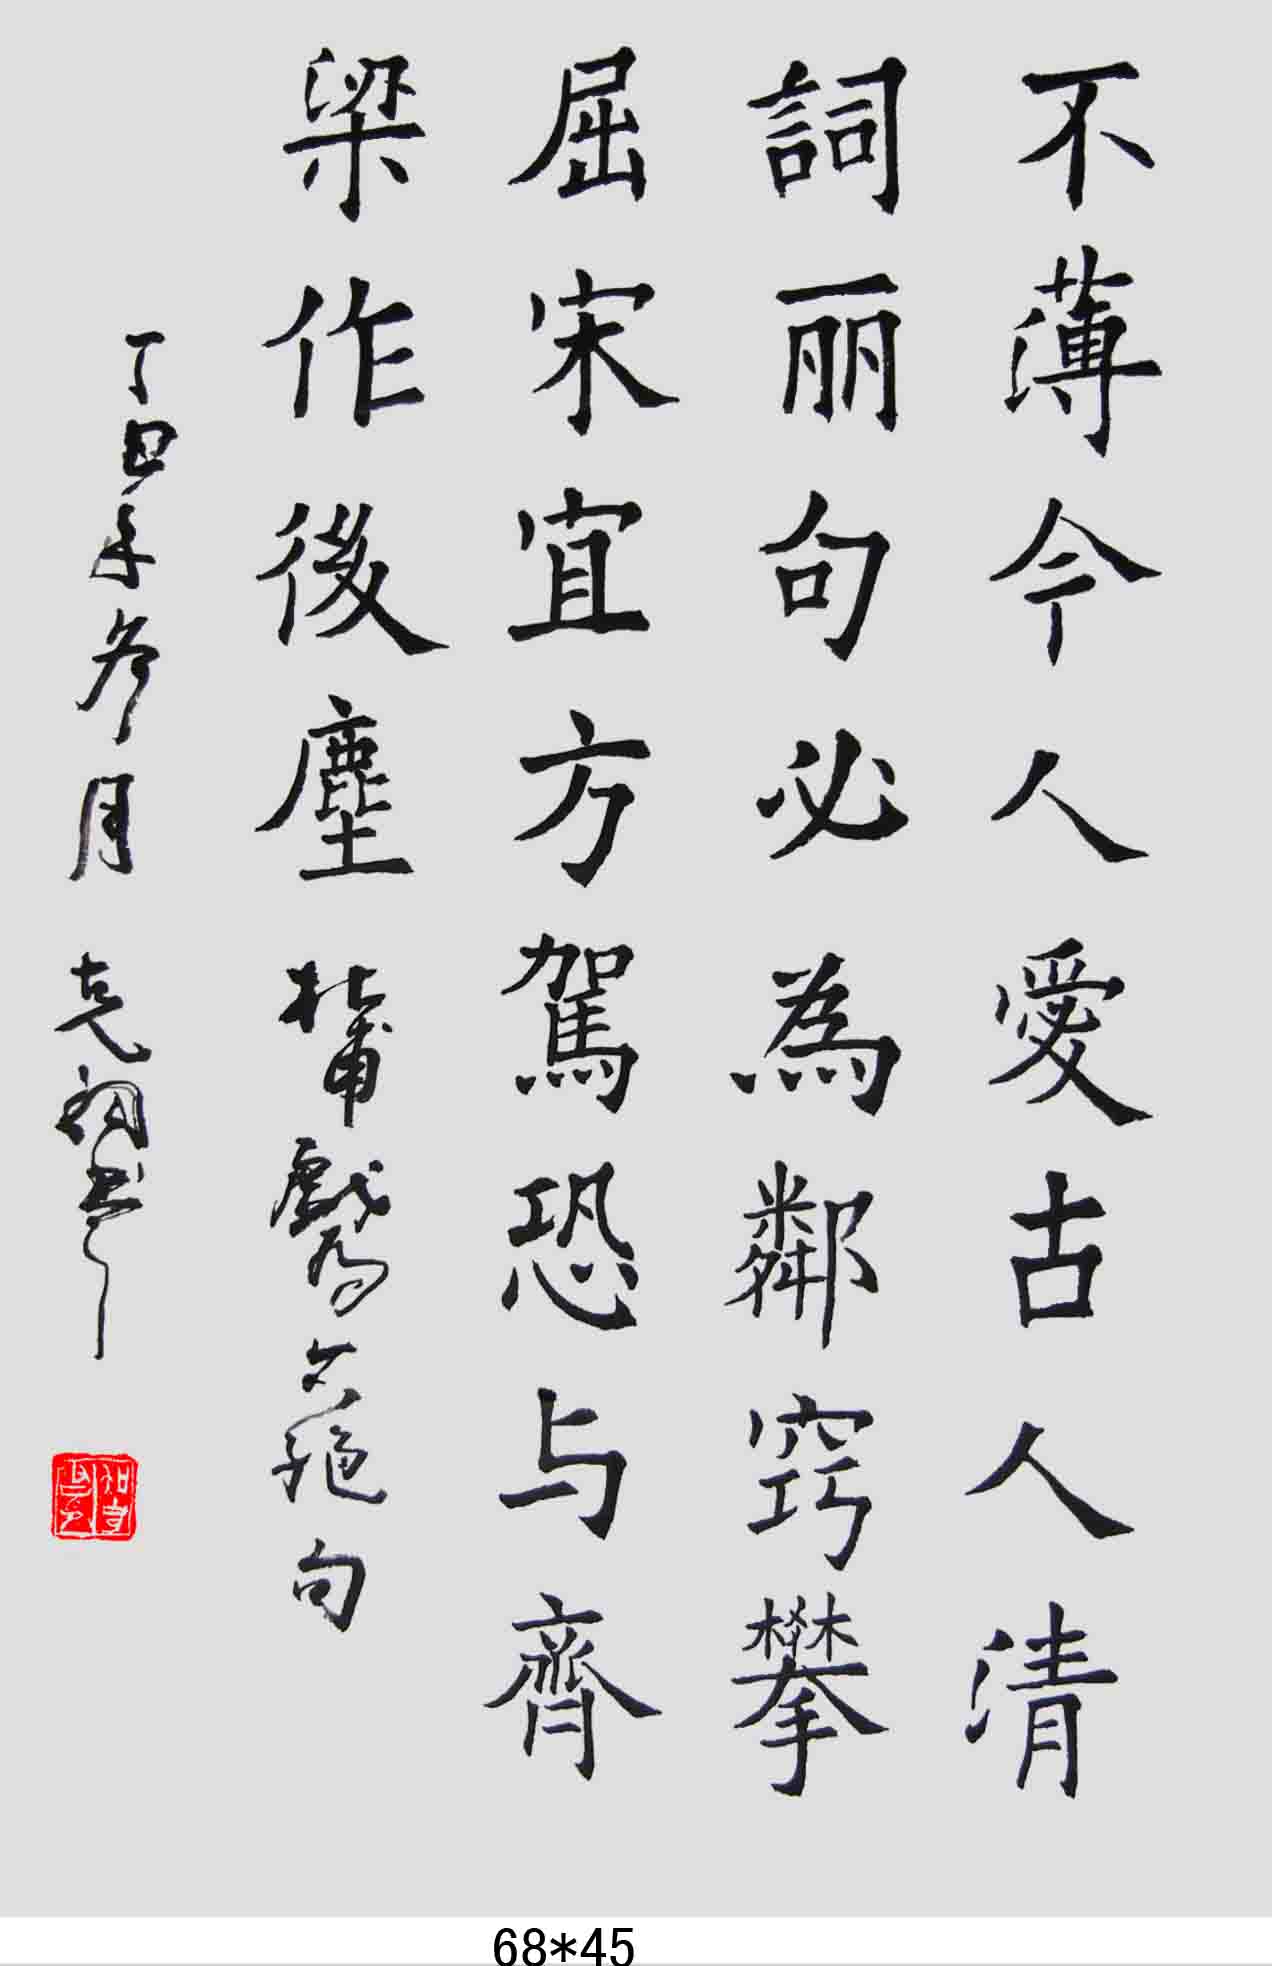 不薄今人愛古人清
詞丽句必為鄰窃攀
屈宋宜方駕恐与齊
梁作後塵 杜甫戲為六絕句
丁丑年冬月 克書
68*45